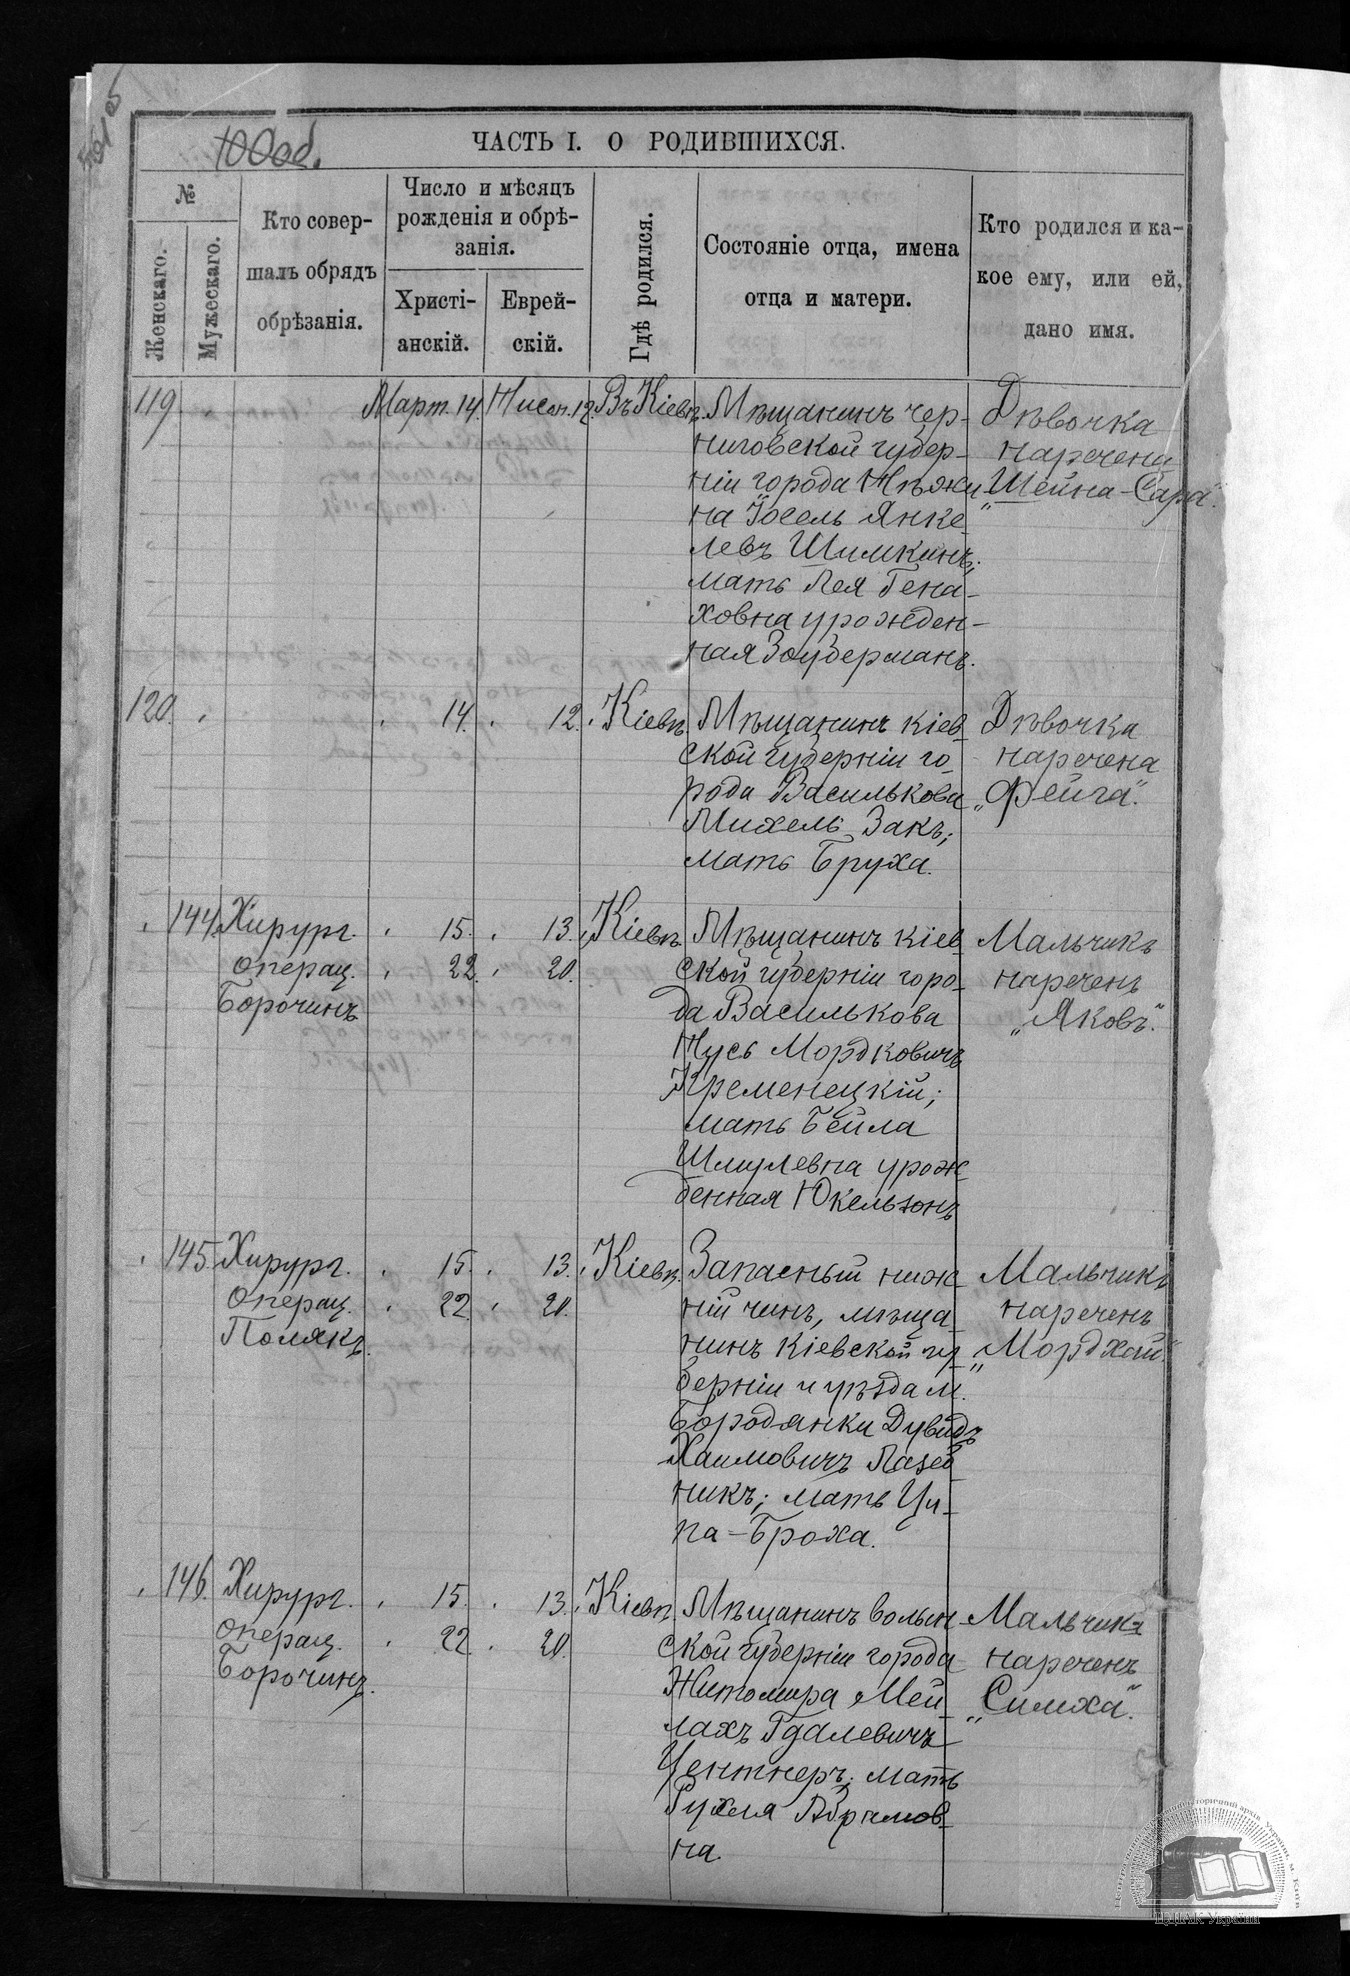 100об.
ЧАСТЬ I. О РОДИВШИХСЯ.
№
Женскаго.
Мужескаго.
Кто совер-
шалъ обрядъ
обрѣзанія.
Число и мѣсяцъ
рожденія и обрѣ-
занія.
Христі-
анскій.
Еврей-
скій.
Гдѣ родился.
Состояніе отца, имена
отца и матери.
Кто родился и ка-
кое ему, или ей,
дано имя.
119
Март. 14.
Нисан. 12.
Въ Кіевѣ.
Мѣщанинъ чер-
ниговской губер-
ніи города Нѣжи
на Іосель Янке
левъ Шимкинъ;
мать Лея Гена-
ховна урожден-
ная Зоуберманъ.
Дѣвочка
наречена
„Шейна-Сара“.
120.
14.
12.
Кіевѣ.
Мѣщанинъ кіев-
ской губерніи го-
рода Василькова
Михель Закъ;
мать Бруха.
Дѣвочка
наречена
„Фейга“.
144.
Хирург.
операц.
Борочинъ
15.
22.
13.
20.
Кіевѣ.
Мѣщанинъ кіев
ской губерніи горо-
да Василькова
Нусь Мордковичъ
Кременецкій;
мать Бейла
Шмулевна урож-
денная Юкельзонъ
Мальчикъ
нареченъ
„Яковъ“.
145.
Хирург.
Операц.
Полякъ.
15.
22.
13.
20.
Кіевѣ.
Запасный ниж-
ній чинъ, мѣща-
нинъ Кіевской гу-
берніи и уѣзда м.
Бородянки Дувидъ
Хаимовичъ Лазеб
никъ; мать Ци-
па-Броха.
Мальчикъ
нареченъ
„Мордхай“.
146.
Хирург.
операц.
Борочинъ.
15.
22.
13.
20.
Кіевѣ.
Мѣщанинъ волын-
ской губерніи города
Житомира Мей-
лахъ Гдалевичъ
Центнеръ; мать
Рухля Абрамов-
на.
Мальчикъ
нареченъ
„Симха“.
ЦДІАК України